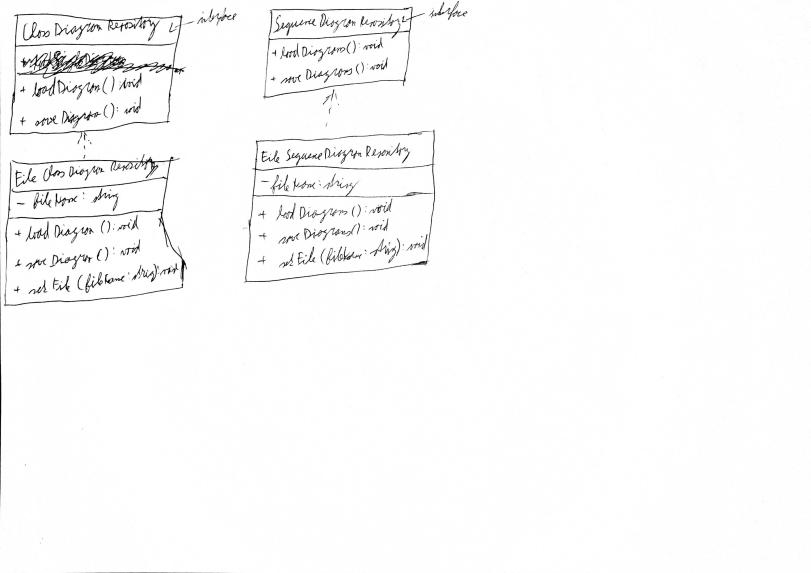 Class Diagram Repository
interface
+ loadDiagram() void
+ saveDiagram(): void
File Class Diagram Repository
- fileName: string
+ loadDiagram(): void
+ saveDiagram(): void
+ setFile (fileName: string): void
Sequence Diagram Repository
interface
+ loadDiagrams(): void
+ saveDiagrams(): void
File Sequence Diagram Repository
- fileName: string
+ loadDiagrams(): void
+ saveDiagrams(): void
+ setFile (fileName: string): void